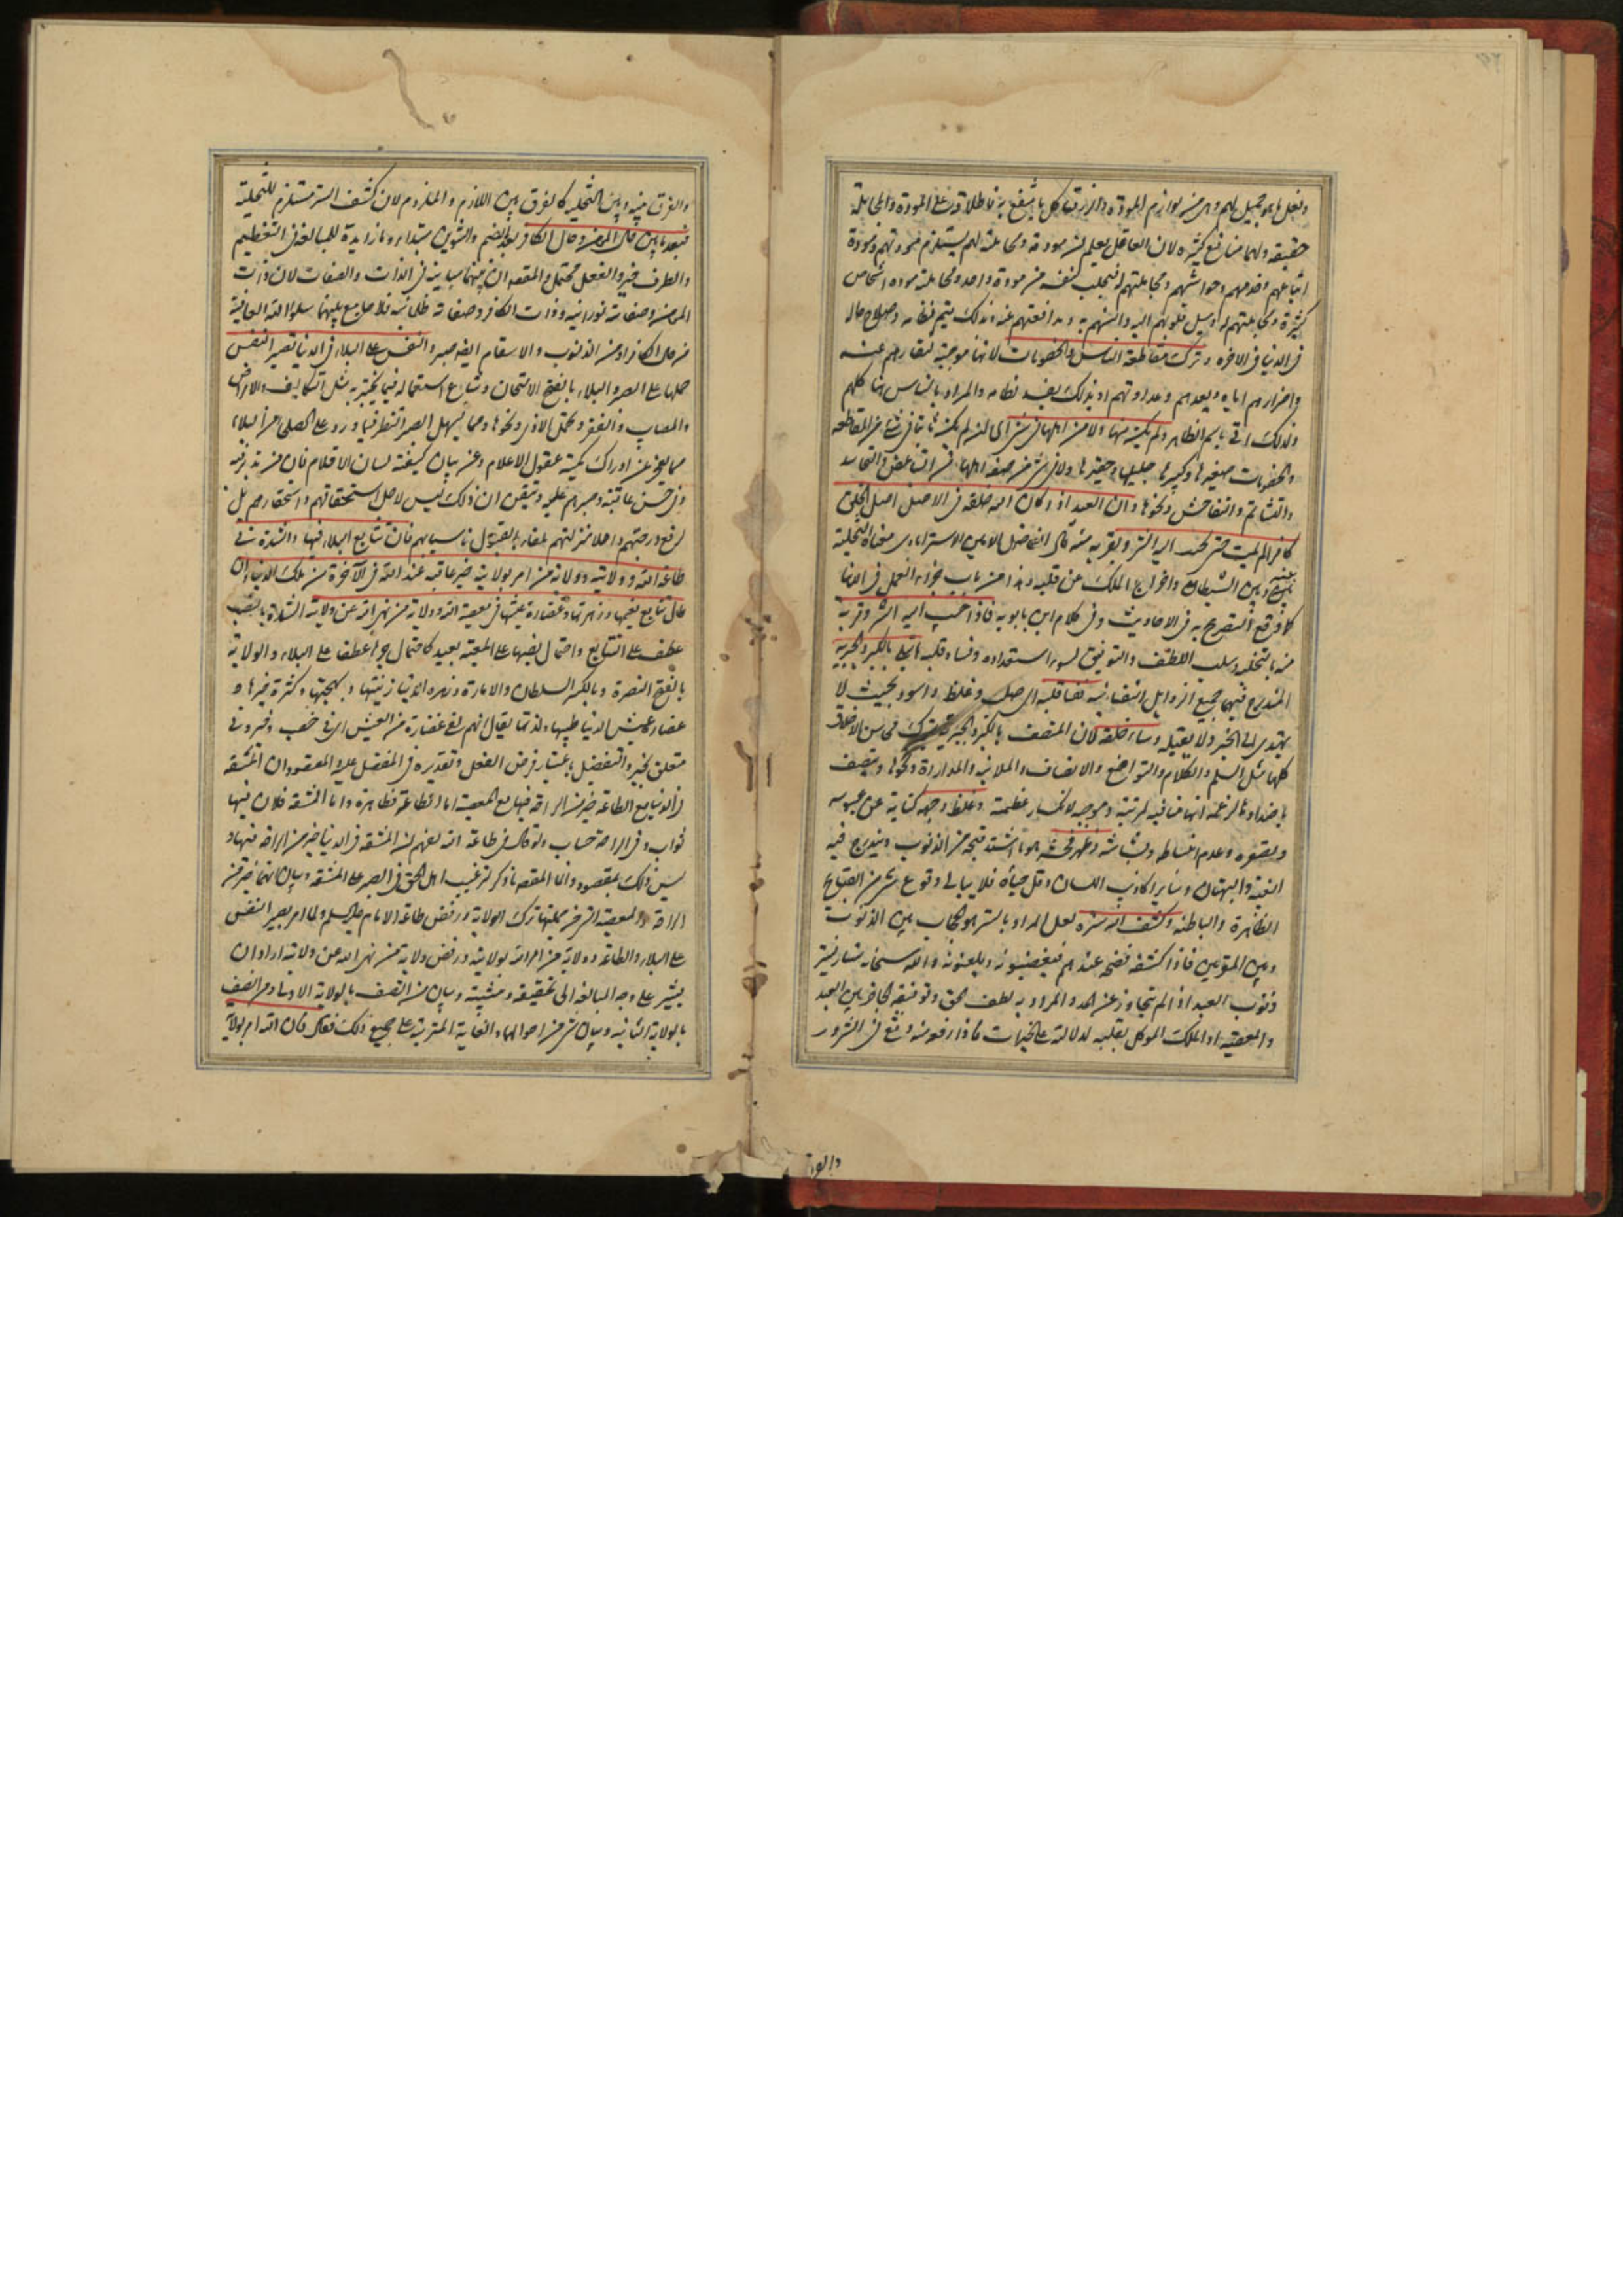 وفعل ما هو جميل لهم وهى من لوازم المودة والرزق كل ما ينتفع به فاطلاقه على المودة والمجاملة
حقيقة ولهما منافع كثيرة لان العاقل يعلم ان مودته ومجاملته لهم يستلزم مودتهم ومودة
اتباعهم وخدمهم وحواشيهم ومجاملتهم له فيجلب لنفسه من مودة واحد ومجاملته مودة اشخاص
كثيرة ومجاملتهم له وميل قلوبهم اليه والسنهم به ومدافعتهم عنه وبذلك يتم نظامه وصلاح حاله
فى الدنيا والاخرة وترك مقاطعة الناس والخصومات لانها موجبة لتقاربهم عنه
واضرارهم اياه وبعدهم وعداوتهم وبذلك يفسد نظامه والمراد بالناس هنا كلهم
ولذلك اتى باسم الظاهر ولم يكن منها ولا من اهلها فى شئ اى لم يكن ثابتا فى شئ من المقاطعة
والخصومات صغيرها وكبيرها جليلها وحقيرها ولا فى شئ من صفة اهلها من التباغض والتحاسد
والتشاتم والتفاحش ونحوها وان العبد اذا كان الله خلقه فى الاصل اصل الخلق
كافرا لم يمت حتى يحبب اليه الشر ويقربه منه قال الفاضل الامين الاسترابادى معناه التخلية
بينه وبين الشيطان واخراج الملك عن قلبه وهذا من باب جزاء العمل فى الدنيا
كما وقع التصريح به فى الاحاديث وفى كلام ابن بابويه فاذا حبب اليه الشر وقربه
منه بالتخلية وسلب اللطف والتوفيق لسوء استعداده وفساد قلبه ابتلى بالكبر والجبرية
المندرج فيهما جميع الرذايل النفسانية فقسا قلبه اى صلب وغلظ واسود بحيث لا
يهتدى الى الخير ولا يقبله وساء خلقه لان المتصف بالكبر والجبرية يترك محاسن الاخلاق
كلها مثل السلم والكلام والتواضع والانصاف والملاينة والمداراة ونحوها ويتصف
باضدادها لزعمه انها منافية لمرتبته وموجبة لانكسار عظمته وغلظ وجهه كناية عن عبوسه
وبصقوره وعدم انبساطه وبشاشته وظهر فحشه هو ما اشتد قبحه من الذنوب ويندرج فيه
الغيبة والبهتان وساير اكاذيب اللسان وقل حياؤه فلا يبالى وقوع شئ من القبايح
الظاهرة والباطنة وكشف الله ستره لعل المراد بالستر هو الحجاب بين الذنوب
وبين المقربين فاذا كشفه فضحه عندهم فيبغضونه ويلعنونه والله سبحانه ستار يستر
ذنوب العبد اذا لم يتجاوز عن الحد والمراد به لطف الحق وتوفيقه الحاجز بين العبد
والمعصية او الملك الموكل بقلبه لدلالته على الخيرات فاذا رفع عنه وقع فى الشرور
والفرق
والفرق بينه وبين التخلية كالفرق بين اللازم والملزوم لان كشف الستر مستلزم للتخلية
فبعد ما بين حال المؤمن وحال الكافر بعد بالضم والتنوين مبتداء وما زايدة للمبالغة فى التعظيم
والظرف خبر والفعل محتمل والمقصود ان بينهما مباينة فى الذات والصفات لان ذات
المؤمن وصفاته نورانية وذات الكافر وصفاته ظلمانية فلا جامع بينهما سلوا الله العافية
من حال الكافر او من الذنوب والاسقام ايضا صبروا النفس على البلاء فى الدنيا تصبير النفس
حملها على الصبر والبلاء بالفتح الامتحان وشاع استعماله فيما يختبر به مثل التكاليف والامراض
والمصايب والفقر وتحمل الاذى ونحوها ومما يسهل الصبر النظر فيما ورد على الصلحاء من البلاء
مما يعجز عن ادراك كميته عقول الاعلام وعن بيان كيفيته لسان الاقلام فان من تدبر فيه
وفى حسن عاقبته وصبرهم عليه وتيقن ان ذلك ليس لاجل استحقاقهم واستحقارهم بل
لرفع درجتهم واعلاء منزلتهم تلقاه بالقبول تاسيا بهم فان تتابع البلاء فيها والشدة فى
طاعة الله وولايته وولاية من امر بولايته خير عاقبة عند الله فى الآخرة من ملك الدنيا وان
طال تتابع نعيمها وزهرتها وغضارة عيشها فى معصية الله وولاية من نهى الله عن ولايته الشدة بالنصب
عطف على التتابع واحتمال نصبها على المعية بعيد كاحتمال جرها عطفا على البلاء والولاية
بالفتح النصرة وبالكسر السلطان والامارة وزهرة الدنيا زينتها وبهجتها وكثرة خيرها و
غضارة عيش الدنيا طيبها ولذتها يقال انهم لفى غضارة من العيش اى فى خصب وخير وفى
متعلق بخير والتفضيل باعتبار فرض الفعل وتقديره فى المفضل عليه والمقصود ان المشقة
فى الدنيا مع الطاعة خير من الراحة فيها مع المعصية اما الطاعة فظاهرة واما المشقة فلان فيها
ثواب وفى الراحة حساب ولو قال فى طاعة الله لفهم ان المشقة فى الدنيا خير من الراحة فيها و
ليس ذلك بمقصود وانما المقصود ما ذكر لترغيب اهل الحق فى الصبر على المشقة وبيان انها خير من
الراحة والمعصية التى من جملتها ترك الولاية ورفض طاعة الامام عليه السلم ولما امر بصبر النفس
على البلاء والطاعة وولاية من امر الله بولايته ورفض ولاية من نهى الله عن ولايته اراد ان
يشير على وجه المبالغة الى تحقيقه ومشيته وبيان من اتصف بالولاية الاولى ومن اتصف
بالولاية الثانية وبيان شئ من احوالهما والغاية المترتبة على جميع ذلك فقال فان الله امر بولاية